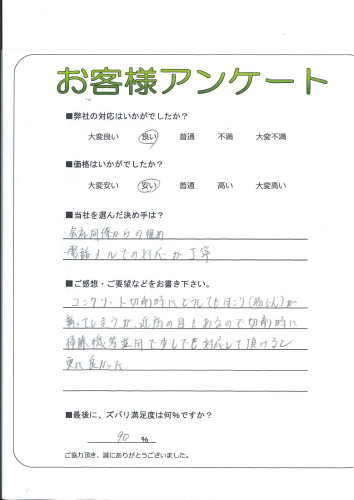 お客様アンケート
■弊社の対応はいかがでしたか?
大変良い 良い 普通 不満 大変不満
■価格はいかがでしたか?
大変安い 安い 普通 高い 大変高い
■当社を選んだ決め手は?
・会社同僚からの推め
・電話メールでの対応が丁寧
■ご感想・ご要望などをお書き下さい。
コンクリート切削時にどうしてもほこり(粉じん)が
舞ってしまうが、近所の目もあるので切削時に
掃除機等併用で少しでも対応して頂けると
更に良かった
■最後に、ズバリ満足度は何%ですか?
90 %
ご協力頂き、誠にありがとうございました。